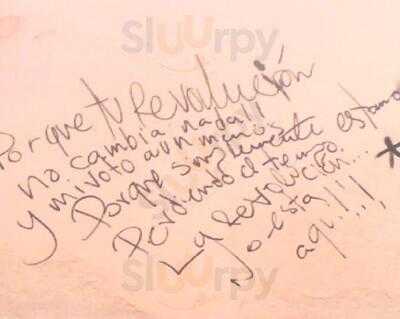 Sluurpy
Porque tu Revolución
no cambia nada!!
y mi voto aun menos
Porque simplemente estamos
Perdiendo el tiempo.
La Revolución...
yo esta
aqui!!!!
Sluurpy
Sluurpy